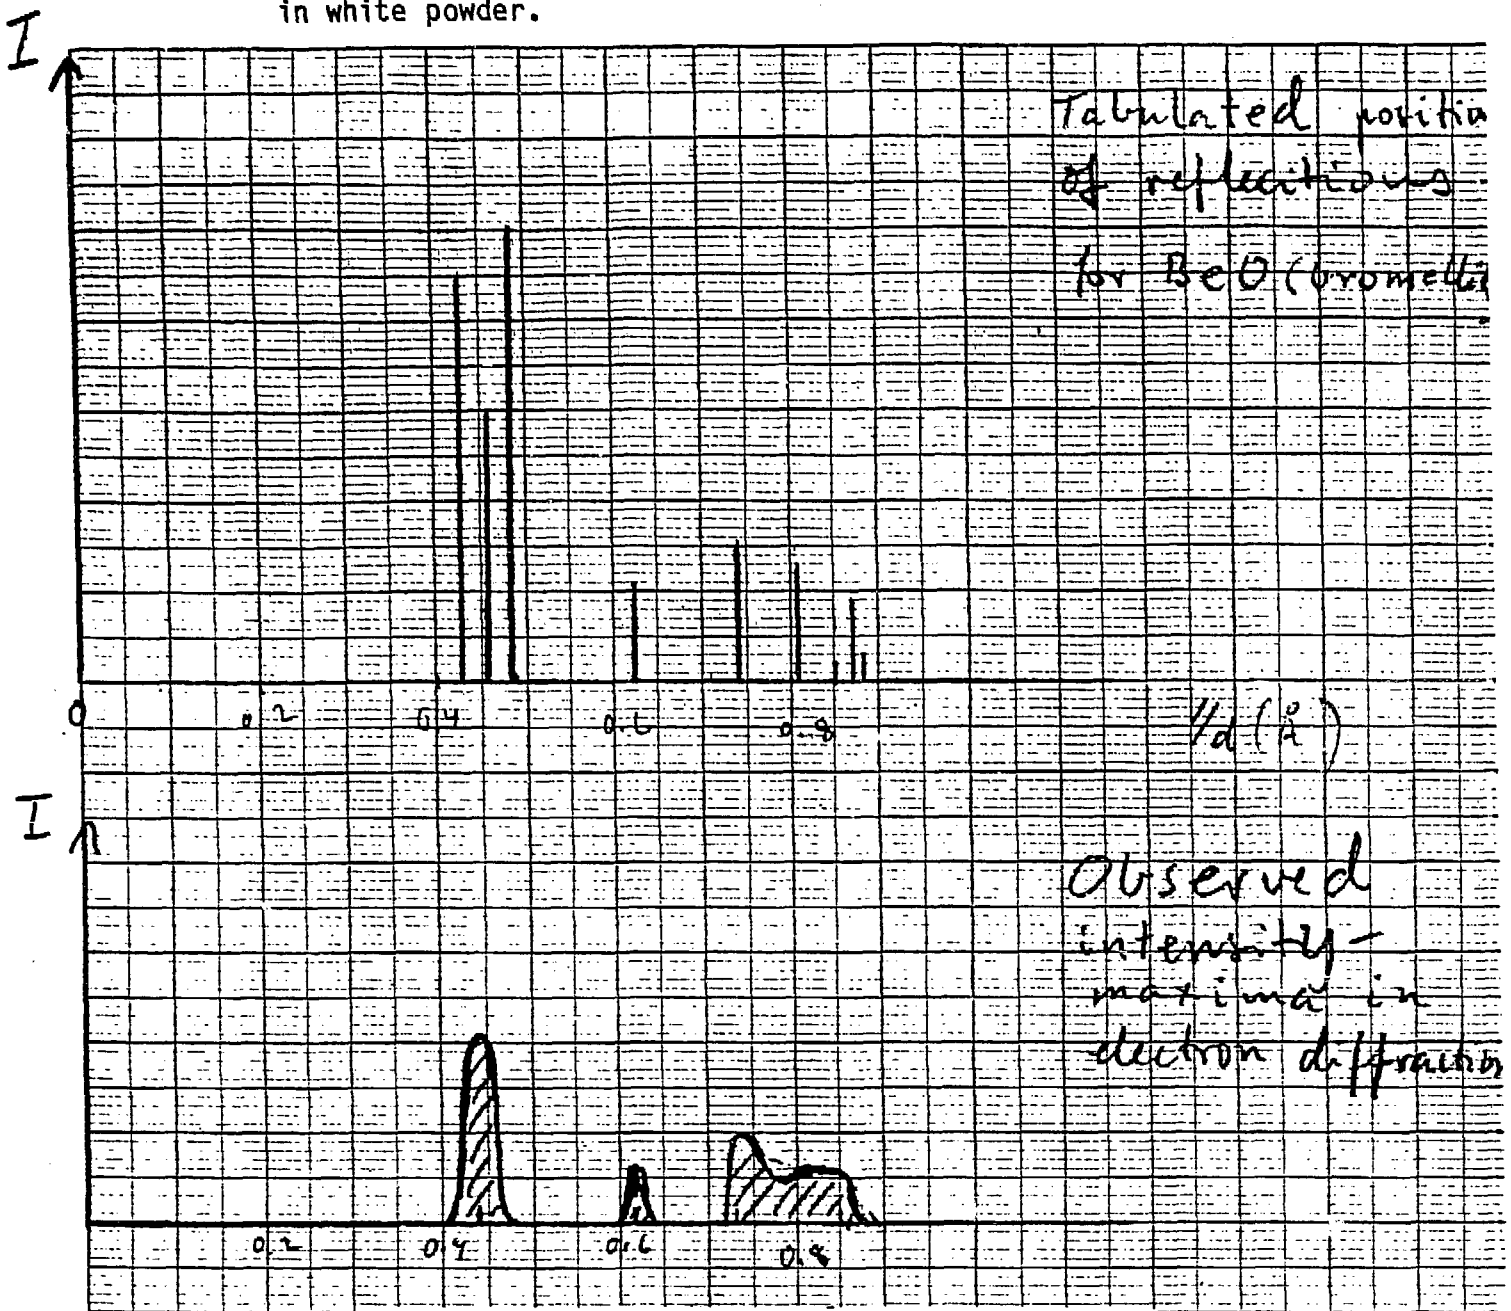 in white powder.
I
Tabulated positio
of reflecitions
for BeO (bromelli
0 0.2 0.4 0.6 0.8 1/d (Å)
I
Observed
intensity-
maxima in
electron diffraction
0.2 0.4 0.6 0.8